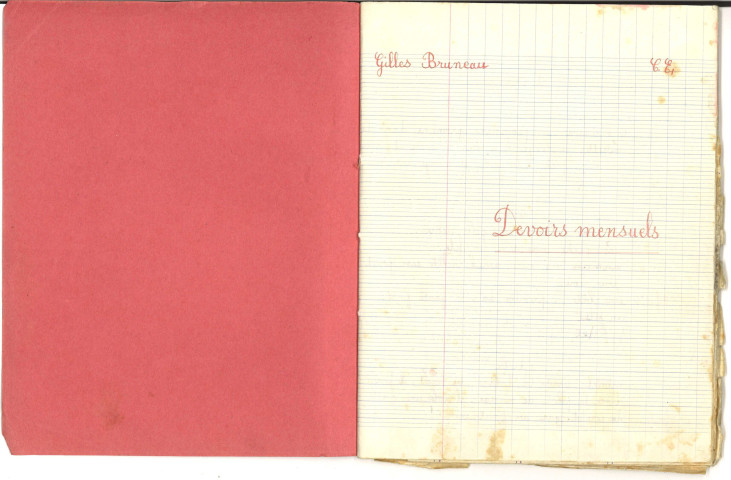 Gilles Bruneau CE1
Devoirs mensuels